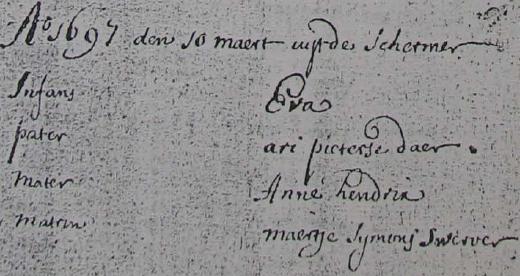 Ao 1697 den 10 maert uijt de Schermer
Infans Eva
pater ari pieterse daer.
Mater Anne hendrix
matrin maertje Symons Swerver